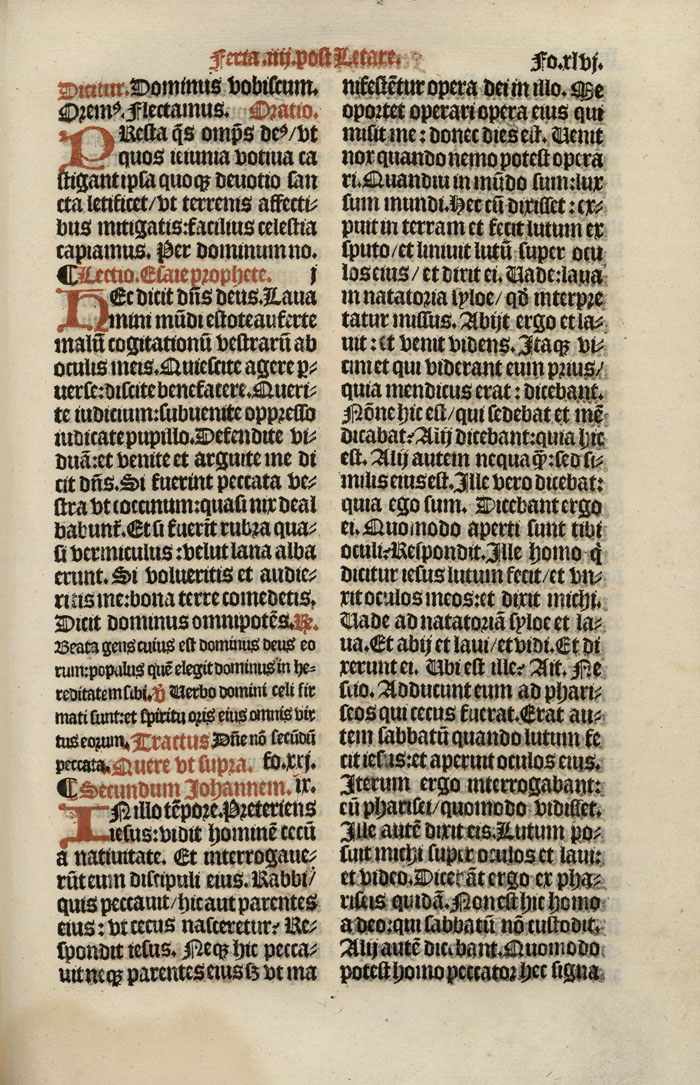 Feria .iiij. post Letare.
Fo.xlvj.
Dicitur. Dominus vobiscum.
Oremꝰ. Flectamus. Oratio.
PResta q̄s omp̄s deꝰ/vt
quos ieiunia votiua ca
stigant ipsa quoqꝫ deuotio san
cta letificet/vt terrenis affecti⸗
bus mitigatis:facilius celestia
capiamus. Per dominum no.
¶ Lectio. Esaie prophete. j
HEc dicit dn̄s deus. Laua
mini mūdi estote auferte
malū cogitationū vestrarū ab
oculis meis. Quiescite agere ꝑ⸗
uerse:discite benefacere. Queri⸗
te iudicium:subuenite oppresso
iudicate pupillo. Defendite vi⸗
duā:et venite et arguite me di
cit dn̄s. Si fuerint peccata ve⸗
stra vt coccinum:quasi nix deal
babunt᷑. Et si fuerīt rubra qua⸗
si vermiculus:velut lana alba
erunt. Si volueritis et audie⸗
ritis me:bona terre comedetis.
Dicit dominus omnipotēs. ℞.
Beata gens cuius est dominus deus eo
rum:populus quē elegit dominus in he⸗
reditatem sibi. ℣ Verbo domini celi fir
mati sunt:et spiritu oris eius omnis vir
tus eorum. Tractus Dn̄e nō secūdū
peccata. Quere vt supra. fo.xxj.
¶ Secundum Johannem. ix.
IN illo tēpore. Preteriens
iesus:vidit hominē cecū
a natiuitate. Et interrogaue⸗
rūt eum discipuli eius. Rabbi/
quis peccauit/hic aut parentes
eius: vt cecus nasceretur? Re⸗
spondit iesus. Neqꝫ hic pecca⸗
uit neqꝫ parentes eius sꝫ vt ma
nifestētur opera dei in illo. Me
oportet operari opera eius qui
misit me: donec dies est. Uenit
nox quando nemo potest opera
ri. Quandiu in mūdo sum:lux
sum mundi. Hec cū dixisset: ex⸗
puit in terram et fecit lutum ex
sputo/et liniuit lutū super ocu
los eius/et dixit ei. Uade:laua
in natatoria syloe/qd̄ interpre
tatur missus. Abijt ergo et la⸗
uit: et venit videns. Itaqꝫ vi⸗
cini et qui viderant eum prius/
quia mendicus erat: dicebant.
Nōne hic est/qui sedebat et mē
dicabat? Alij dicebant:quia hic
est. Alij autem nequaꝗ̄:sed si⸗
milis eius est. Ille vero dicebat:
quia ego sum. Dicebant ergo
ei. Quomodo aperti sunt tibi
oculi? Respondit. Ille homo q̇
dicitur iesus lutum fecit/et vn⸗
xit oculos meos:et dixit michi.
Uade ad natatoriā syloe et la⸗
ua. Et abij et laui/et vidi. Et di
xerunt ei. Ubi est ille? Ait. Ne
scio. Adducunt eum ad phari⸗
seos qui cecus fuerat. Erat au⸗
tem sabbatū quando lutum fe
cit iesus:et aperuit oculos eius.
Iterum ergo interrogabant:
cū pharisei/quomodo vidisset.
Ille autē dixit eis. Lutum po⸗
suit michi super oculos et laui:
et video. Dicebāt ergo ex pha⸗
riseis quidā. Non est hic homo
a deo:qui sabbatū nō custodit.
Alij autē dicebant. Quomodo
potest homo peccator hec signa